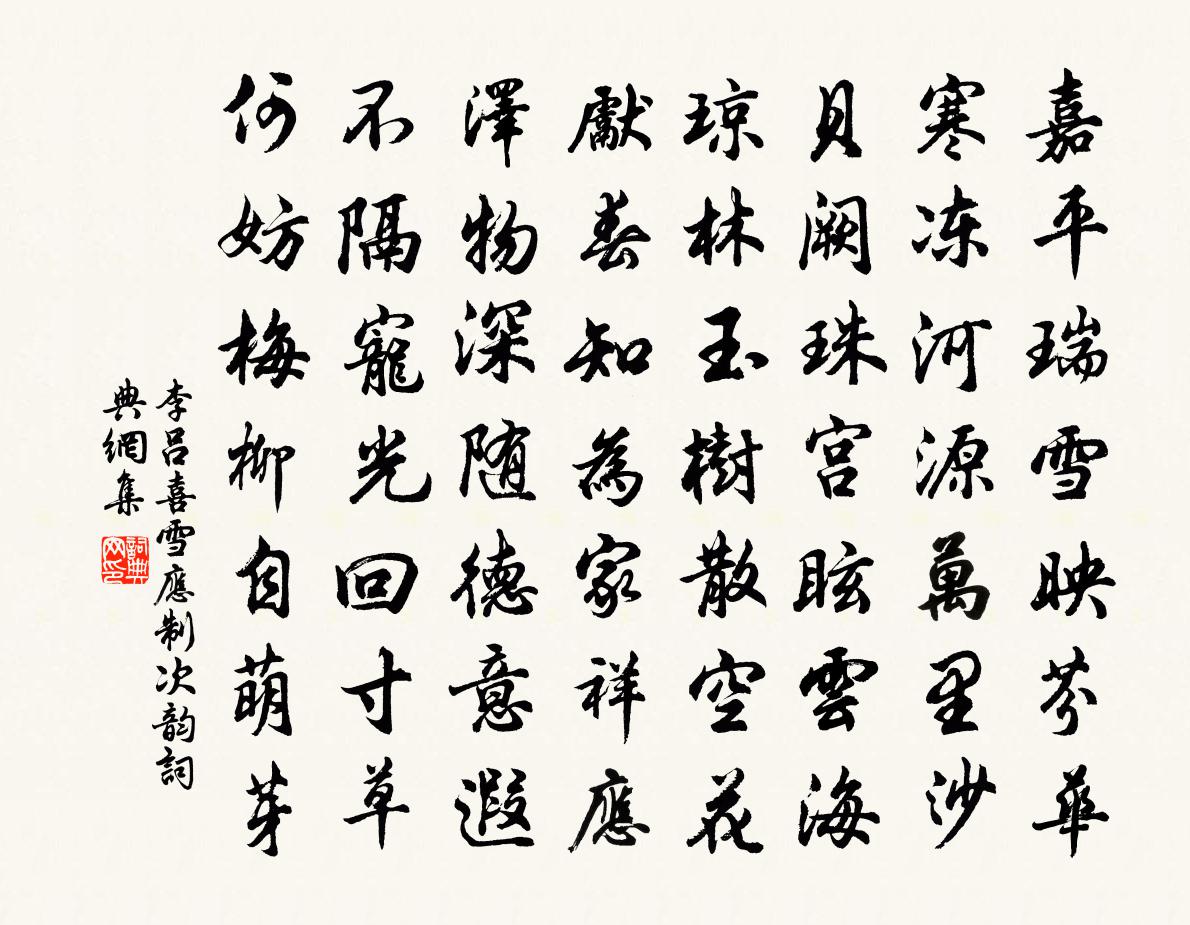 嘉平瑞雪映芬華
寒冻河源萬里沙
貝阙珠宫眩雲海
琼林玉樹散空花
獻春知為家祥應
澤物深随德意遐
不隔寵光回寸草
何妨梅柳自萌芽
李吕喜雪應制次韵詞
典網集
詞典
网印